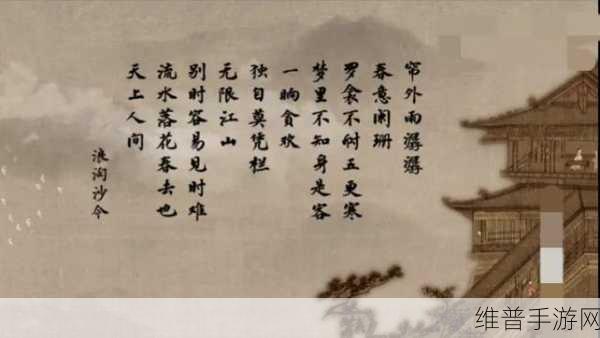 帘外雨潺潺
春意阑珊
罗衾不耐五更寒
梦里不知身是客
一晌贪欢
独自莫凭栏
无限江山
别时容易见时难
流水落花春去也
天上人间
浪淘沙令
维普手游网